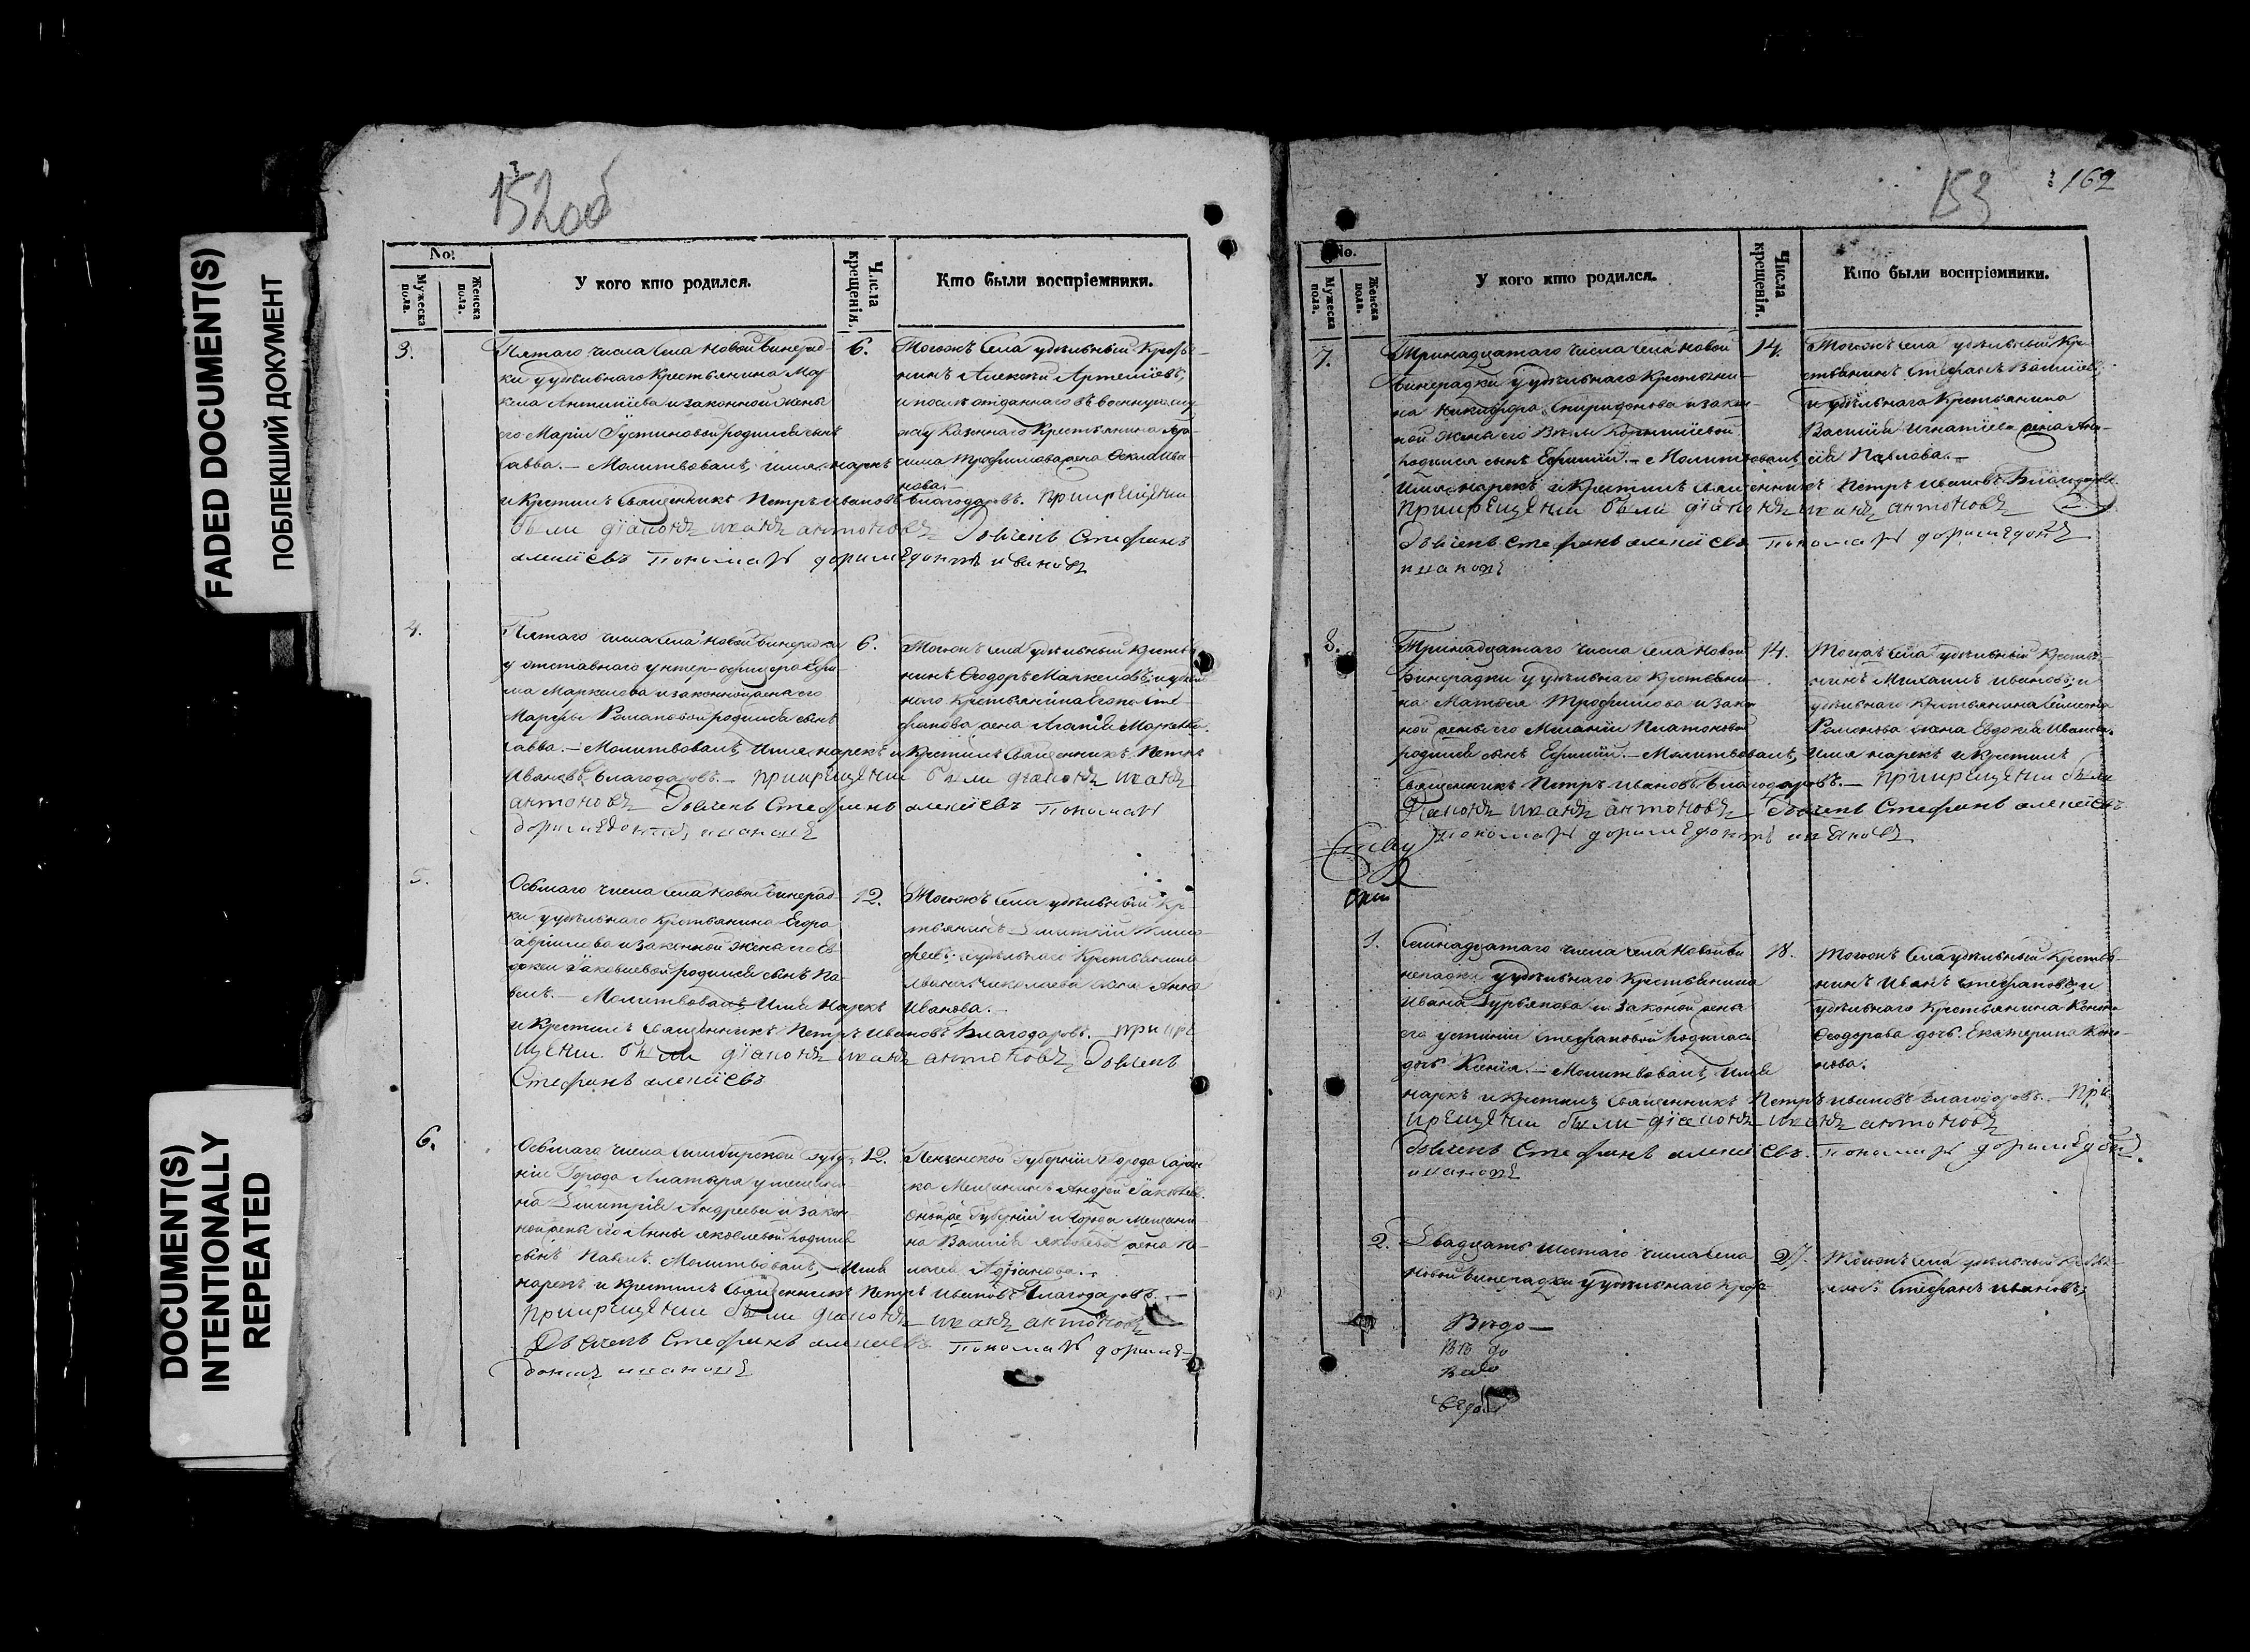 FADED DOCUMENT(S)
ПОБЛЕКШИЙ ДОКУМЕНТ
DOCUMENT(S)
INTENTIONALLY
REPEATED
152об
No:
Мужеска пола.
Женска пола.
У кого кто родился.
Числа крещенія.
Кто были воспріемники.
3.
Пятаго числа села Новой Бинерад-
ки у удѣльнаго Крестьянина Мар
кела Антипіева и законной жены
его Маріи Іустиновой родился сынъ
Савва. — Молитвовалъ, имя нарекъ
и Крестилъ Священникъ Петръ Ивановъ Благодаровъ. при крещеніи
были діаконъ иванъ антоновъ Дьячекъ Стефанъ
алексіевъ Пономарь доримедонтъ ивановъ
6.
Тогожъ села удѣльный Кресть-
нинъ Алексѣй Артеміевъ,
Казеннаго Крестьянина
Трофимова жена Фекла Ива
нова. —
4.
Пятаго числа села Новой Бинерадки
у отставнаго унтер-офицера Еφи-
ма Маркелова и законной жены его
Марфы Романовой родился сынъ
Савва. — Молитвовалъ, имя нарекъ и Крестилъ Священникъ Петръ
Ивановъ Благодаровъ. — при крещеніи были діаконъ иванъ
антоновъ Дьячекъ Стефанъ алексіевъ Пономарь
доримедонтъ ивановъ
6.
Тогожъ села удѣльный Кресть
нинъ Ѳеодоръ Маркеловъ; и удѣль
наго Крестьянина Сте-
фанова жена Агапія Маркело
5.
Осьмаго числа села Новой Бинерад-
ки у удѣльнаго Крестьянина Егора
Гавриилова и законной жены его Ев
докіи Іаковлевой родился сынъ Па-
велъ. — Молитвовалъ, имя нарекъ
и Крестилъ Священникъ Петръ Ивановъ Благодаровъ. — при кре
щеніи были діаконъ иванъ антоновъ Дьячекъ
Стефанъ алексіевъ
12.
Тогожъ села удѣльный Кре
стьянинъ Димитрій
удѣльнаго Крестьянина
Николаева жена Анна
Иванова. —
6.
Осьмаго числа Симбирской Губер
ніи Города Алатыря у мещани-
на Димитрія Андреева и закон-
ной жены его Анны Яковлевой родился
сынъ Павелъ. Молитвовалъ, — Имя
нарекъ и Крестилъ Священникъ Петръ Ивановъ Благодаровъ. —
при крещеніи были діаконъ иванъ антоновъ
Дьячекъ Стефанъ алексіевъ Пономарь дориме-
донтъ ивановъ
12.
Пензенской Губерніи Города Саран
ска Мещанинъ Андрей Іаковлев.
Оной же Губерніи и Города Мещани-
на Василія Яковлева жена
Адріанова. —
153
162
No.
Мужеска пола.
Женска пола.
У кого кто родился.
Числа крещенія.
Кто были воспріемники.
7.
Тринадцатаго числа села Новой
Бинерадки у удѣльнаго Крестьяни-
на Никифора Спиридонова и закон-
ной жены его Вѣры
родился сынъ Ефимій. — Молитвовалъ,
Имя нарекъ и Крестилъ Священникъ Петръ Ивановъ Благодаровъ.
при крещеніи были діаконъ иванъ антоновъ
Дьячекъ Стефанъ алексіевъ Пономарь доримедонтъ
ивановъ
14.
Тогожъ села удѣльный Кре
стьянинъ Стефанъ Василіевъ,
и удѣльнаго Крестьянина
Василія Игнатіева жена Ана-
сія Павлова. —
8.
Тринадцатаго числа села Новой
Бинерадки у удѣльнаго Крестьяни-
на Матвея Трофимова и закон
ной жены его Меланіи Платоновой
родился сынъ Ефимій. — Молитвовалъ, Имя нарекъ и Крестилъ
Священникъ Петръ Ивановъ Благодаровъ. — при крещеніи были
діаконъ иванъ антоновъ Дьячекъ Стефанъ алексіевъ
пономарь доримедонтъ ивановъ
14.
Тогожъ села удѣльный Кресть
нинъ Михаилъ Ивановъ; и
удѣльнаго Крестьянина Семена
Романова жена Евдокія Иванова.
1.
Семнадцатаго числа села Новой Би
нерадки у удѣльнаго Крестьянина
Ивана Гурьянова и законой жены
его Устиніи Стефановой родилась
дочь Ксенія. — Молитвовалъ, Имя
нарекъ и Крестилъ Священникъ Петръ Ивановъ Благодаровъ. — При
крещеніи были діаконъ иванъ антоновъ
Дьячекъ Стефанъ алексіевъ. Пономарь доримедонтъ
ивановъ
18.
Тогожъ села удѣльный Крестья-
нинъ Иванъ Стефановъ; и
удѣльнаго Крестьянина Конона
Ѳеодорова дочь Екатерина Коно-
нова.
2.
Двадцать шестаго числа села
Новой Бинерадки у удѣльнаго Крест
27.
Тогожъ села удѣльный Крестья
нинъ Стефанъ Ивановъ,